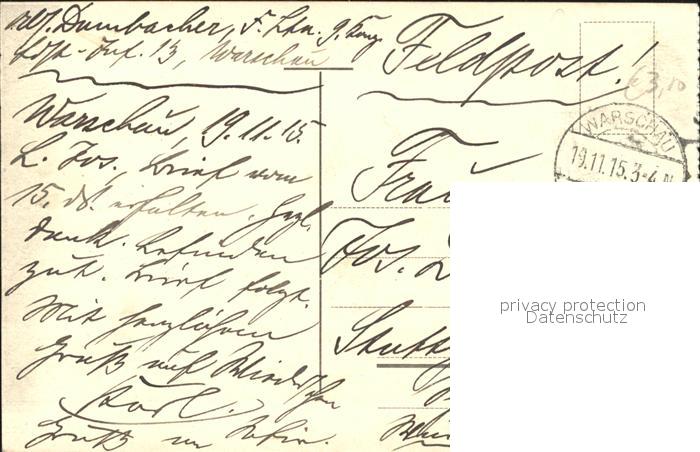 Dambacher, F. Ltn. 9. Komp.
Ldst. Inf. 13, Warschau
Feldpost!
€ 3,10
WARSCHAU
19.11.15. 3-4 N
Warschau, 19.11.15.
L. Jos. Brief vom
15. ds. erhalten. Herzl.
Dank. Befinden
gut. Brief folgt.
Mit herzlichem
Gruß auf Wiedersehen
Karl.
Frau
Jos.
Stuttg
privacy protection
Datenschutz